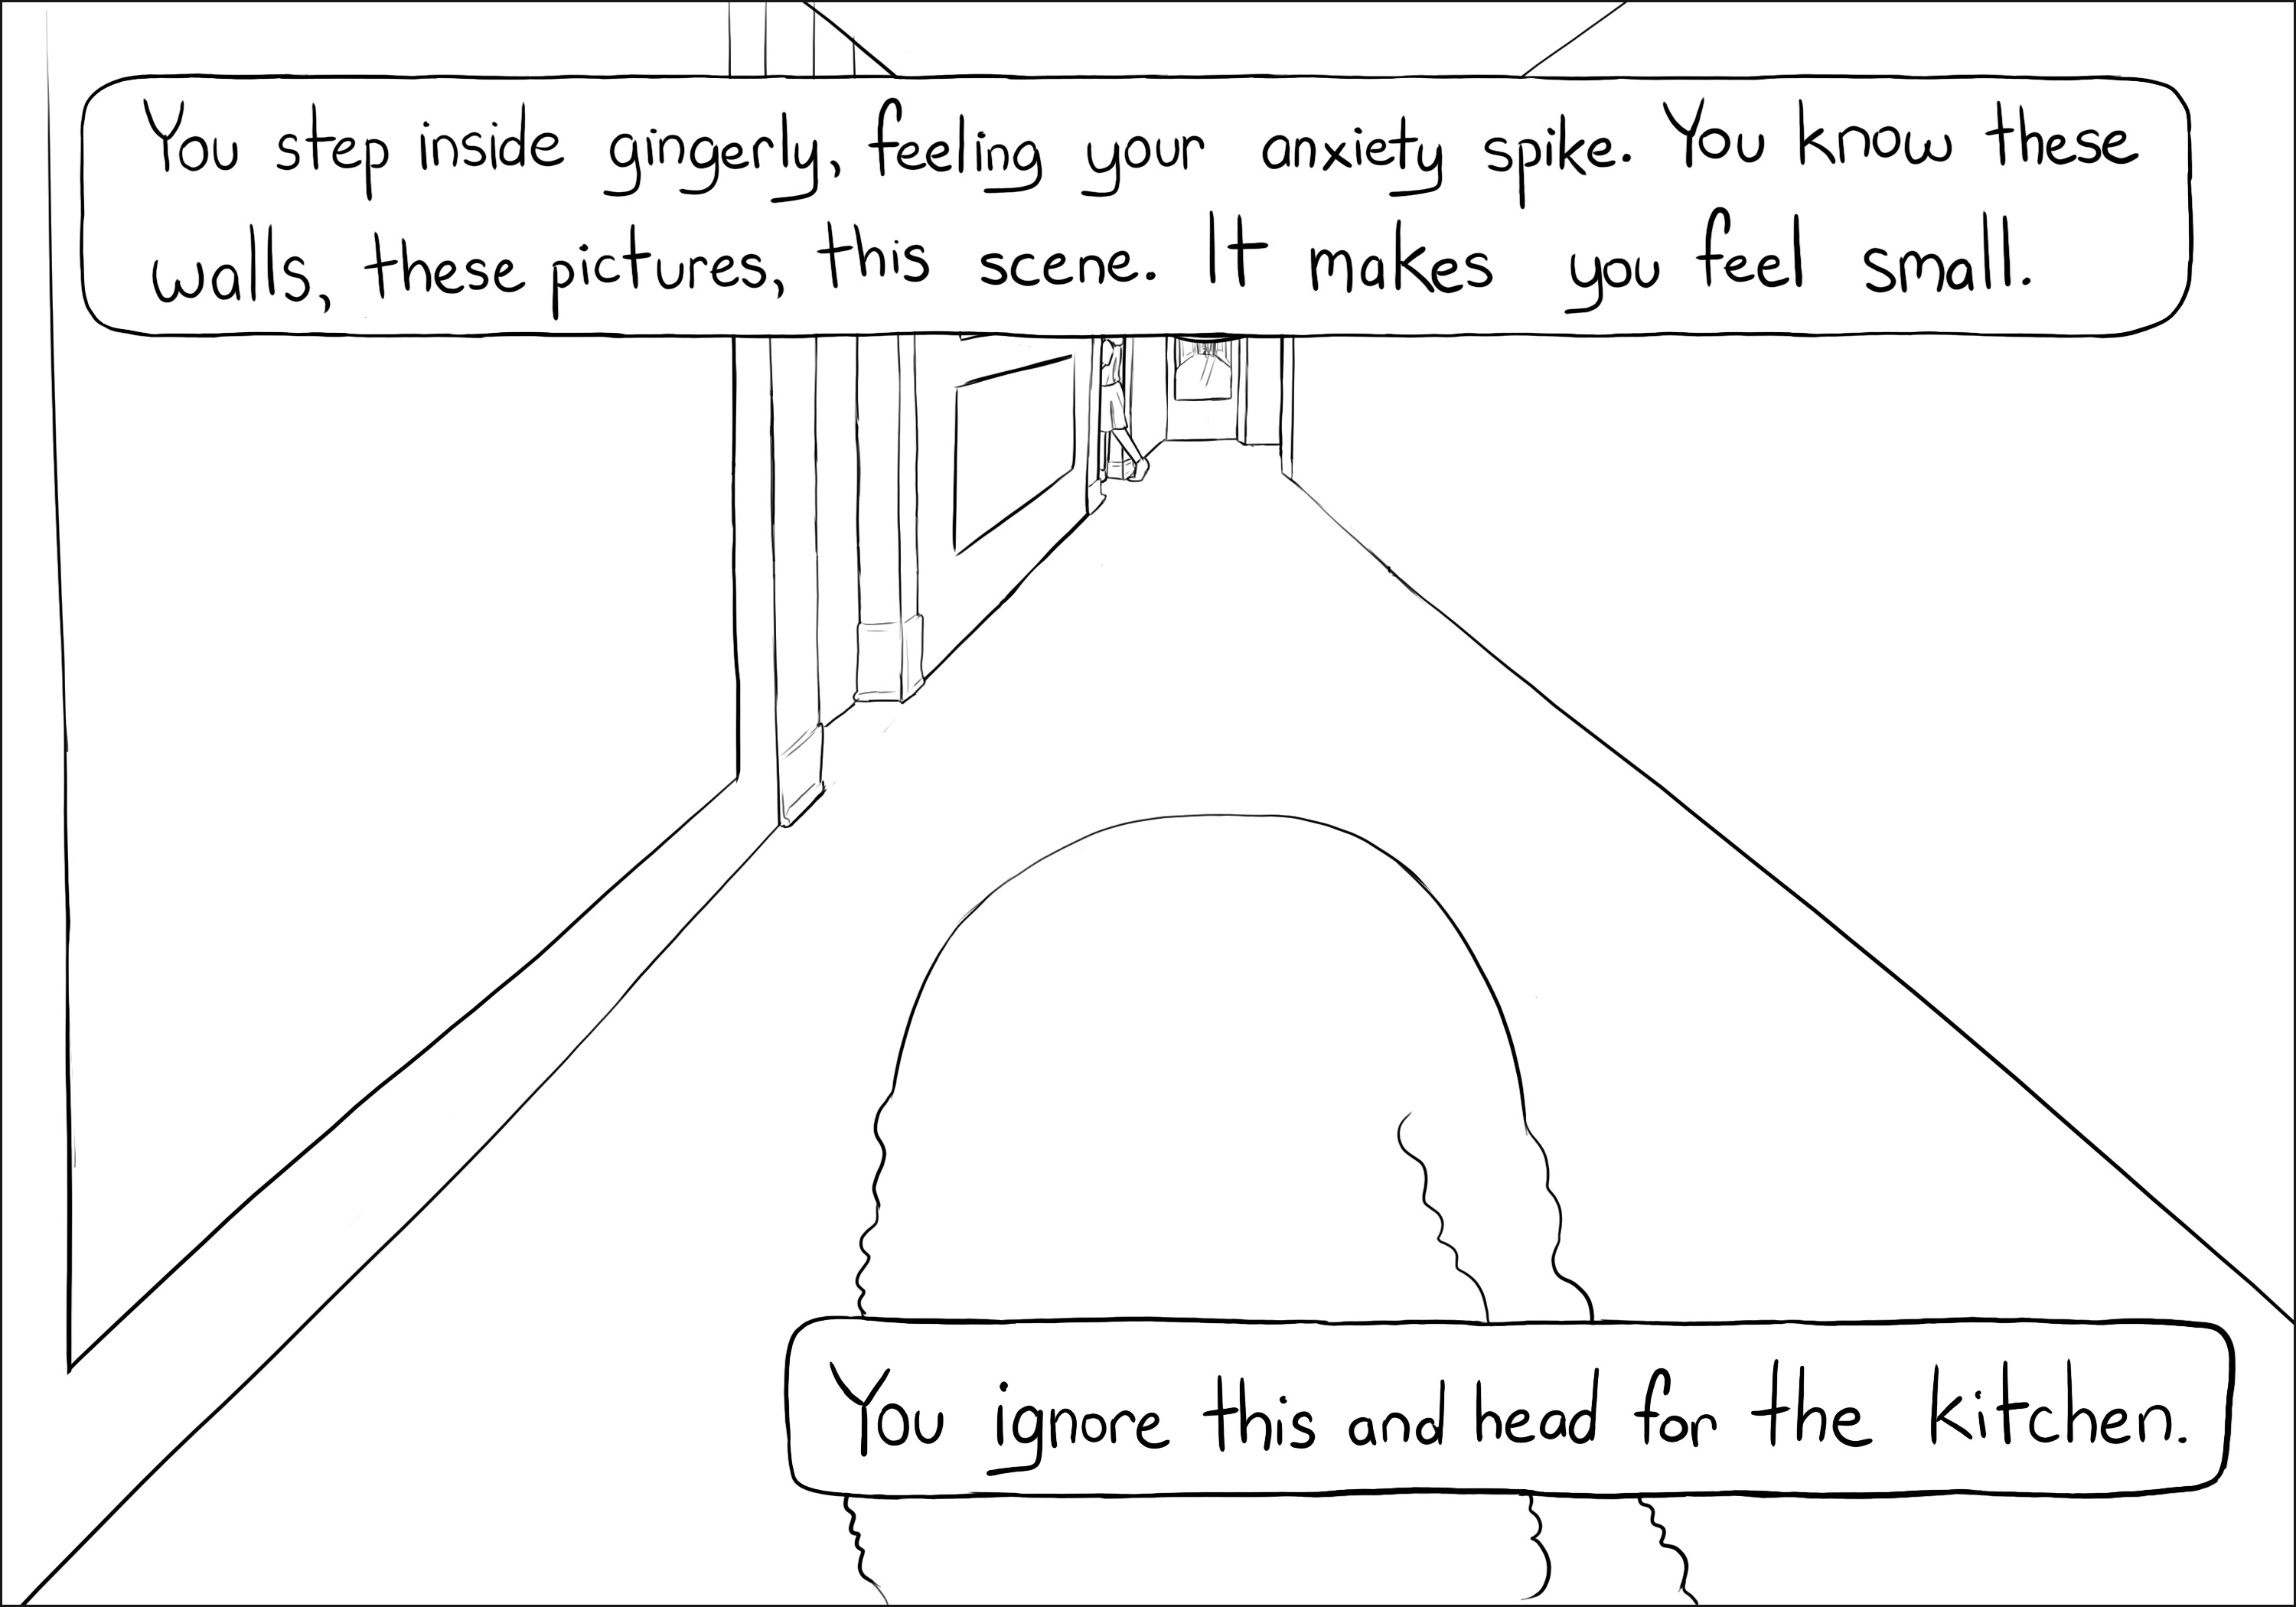 You step inside gingerly, feeling your anxiety spike. You know these
walls, these pictures, this scene. It makes you feel small.
You ignore this and head for the kitchen.